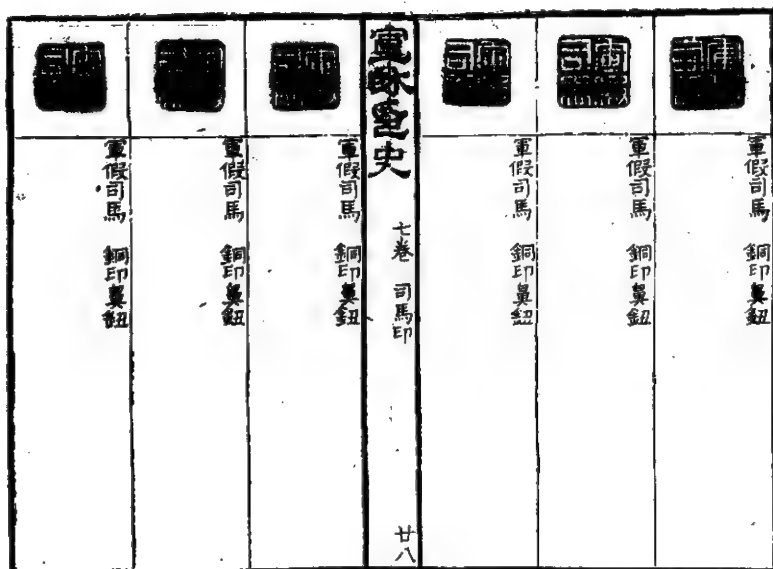 軍假司馬 銅印鼻鈕
軍假司馬 銅印鼻鈕
軍假司馬 銅印鼻鈕
宣和印史 七卷 司馬印 廿八
軍假司馬 銅印鼻鈕
軍假司馬 銅印鼻鈕
軍假司馬 銅印鼻鈕